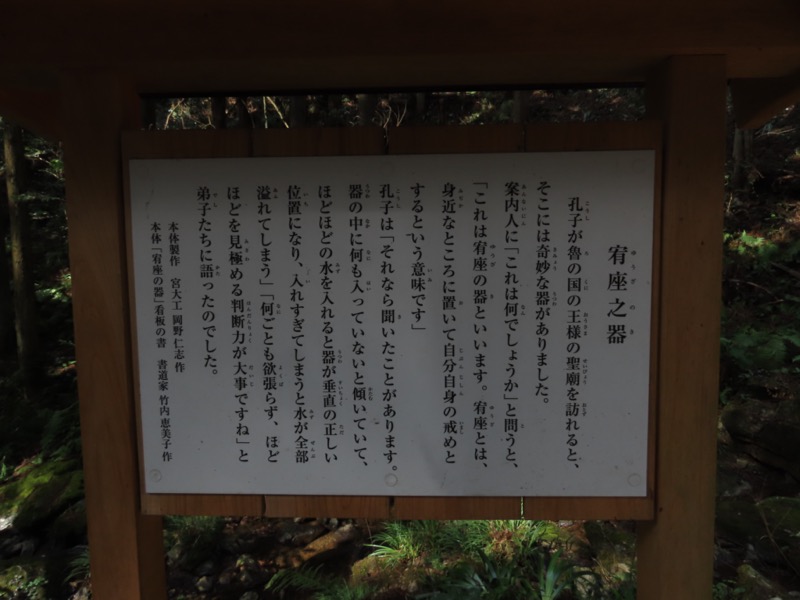 宥座之器
孔子が魯の国の王様の聖廟を訪れると、
そこには奇妙な器がありました。
案内人に「これは何でしょうか」と問うと、
「これは宥座の器といいます。宥座とは、
身近なところに置いて自分自身の戒めと
するという意味です」
孔子は「それなら聞いたことがあります。
器の中に何も入っていないと傾いていて、
ほどほどの水を入れると器が垂直の正しい
位置になり、入れすぎてしまうと水が全部
溢れてしまう」「何ごとも欲張らず、ほど
ほどを見極める判断力が大事ですね」と
弟子たちに語ったのでした。
本体製作　宮大工 岡野仁志 作
本体「宥座の器」看板の書　書道家 竹内恵美子 作